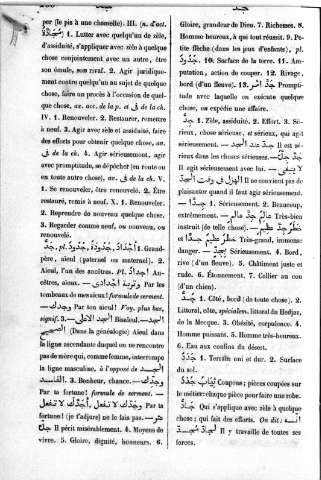 per (le pis à une chamelle). III. (n. d'act.
مُجَادَّةٌ) 1. Lutter avec quelqu'un de zèle,
d'assiduité, s'appliquer avec zèle à quelque
chose conjointement avec un autre, être
son émule, son rival. 2. Agir juridiquement
contre quelqu'un au sujet de quelque
chose, faire un procès à l'occasion de quelque
chose, av. acc. de la p. et فى de la ch.
IV. 1. Renouveler. 2. Restaurer, remettre
à neuf. 3. Agir avec zèle et assiduité, faire
des efforts pour obtenir quelque chose, av.
فى de la ch. 4. Agir sérieusement, agir
avec promptitude, se dépêcher (en route ou
en toute autre chose), av. فى de la ch. V.
1. Se renouveler, être renouvelé. 2. Être
restauré, remis à neuf. X. 1. Renouveler.
2. Reprendre de nouveau quelque chose.
3. Regarder comme neuf, ou nouveau, ou
renouvelé.
جَدٌّ, pl. أَجْدَادٌ, جُدُودٌ, جُدُودَةٌ 1. Grand-
père, aïeul (paternel ou maternel). 2.
Aïeul, l'un des ancêtres. Pl. اجداد An-
cêtres, aïeux. وتربة اجدادى Par les
tombeaux de mes aïeux! formule de serment.
وجدك Par ton aïeul! Voy. plus bas,
signif. 3. الجد الاعلى Bisaïeul. الجد
الصحيح (Dans la généalogie) Aïeul dans
la ligne ascendante duquel on ne rencontre
pas de mère qui, comme femme, interrompe
la ligne masculine, à l'opposé de الجد
الفاسد. 3. Bonheur, chance. وجدك
Par ta fortune! formule de serment.
وجدك لا تفعل, أجدك لا تفعل Par ta
fortune! (je t'adjure) ne le fais pas.
Il périt misérablement. 4. Moyens de
vivre. 5. Gloire, dignité, honneurs. 6.
Gloire, grandeur de Dieu. 7. Richesses. 8.
Homme heureux, à qui tout réussit. 9. Pe-
tite flèche (dans les jeux d'enfants), pl.
جُدُودٌ. 10. Surface de la terre. 11. Am-
putation, action de couper. 12. Rivage,
bord (d'un fleuve). 13. Prompti-
tude avec laquelle on exécute quelque
chose, ou expédie une affaire.
جِدٌّ 1. Zèle, assiduité. 2. Effort. 3. Sé-
rieux, chose sérieuse, et sérieux, qui agit
sérieusement. Il est sé-
rieux dans les choses sérieuses.
Il agit sérieusement avec lui.
Il ne convient pas de
plaisanter quand il faut agir sérieusement.
جِدًّا 1. Sérieusement. 2. Beaucoup,
extrêmement. عالم جد عالم Très-bien
instruit (de telle chose). خطر جد عظيم,
خطر عظيم جدا Très-grand, immense
danger. Sérieusement. 4. Bord,
rive (d'un fleuve). 5. Châtiment juste et
rude. 6. Étonnement. 7. Collier au cou
(d'un chien).
جُدٌّ 1. Côté, bord (de toute chose). 2.
Littoral, côte, spécialem. littoral du Hedjaz,
de la Mecque. 3. Obésité, corpulence. 4.
Homme puissant. 5. Homme très-heureux.
6. Eau aux confins du désert.
جَدَدٌ 1. Terrain uni et dur. 2. Surface
du sol.
ثياب جدد Coupons; pièces coupées sur
le métier: chaque pièce pour faire une robe.
جَادٌّ Qui s'applique avec zèle à quelque
chose; qui fait des efforts. On dit:
Il travaille de toutes
ses forces.